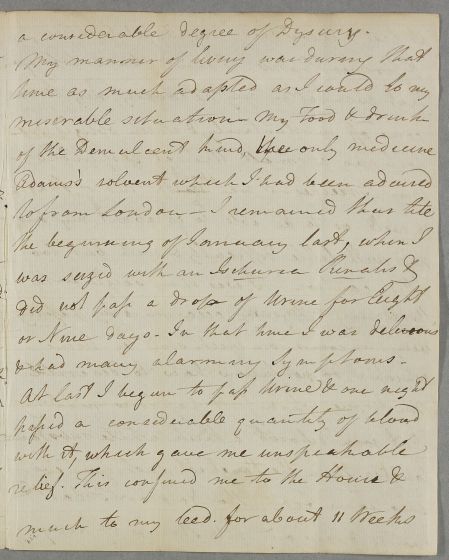 a considerable degree of Dysury.
My manner of living was during that
time as much adapted as I could to my
miserable situation - My Food & drink
of the Demulcent kind, the only medicine
Adams's solvent which I had been advised
to from London - I remained thus till
the beginning of January last, when I
was seized with an Ischuria Renalis &
did not pass a drop of Urine for Eight
or Nine days - In that time I was delirious
& had many alarming Symptoms -
At last I began to pass Urine & one night
passed a considerable quantity of blood
with it, which gave me unspeakable
relief. This confined me to the House &
much to my bed. for about 11 Weeks